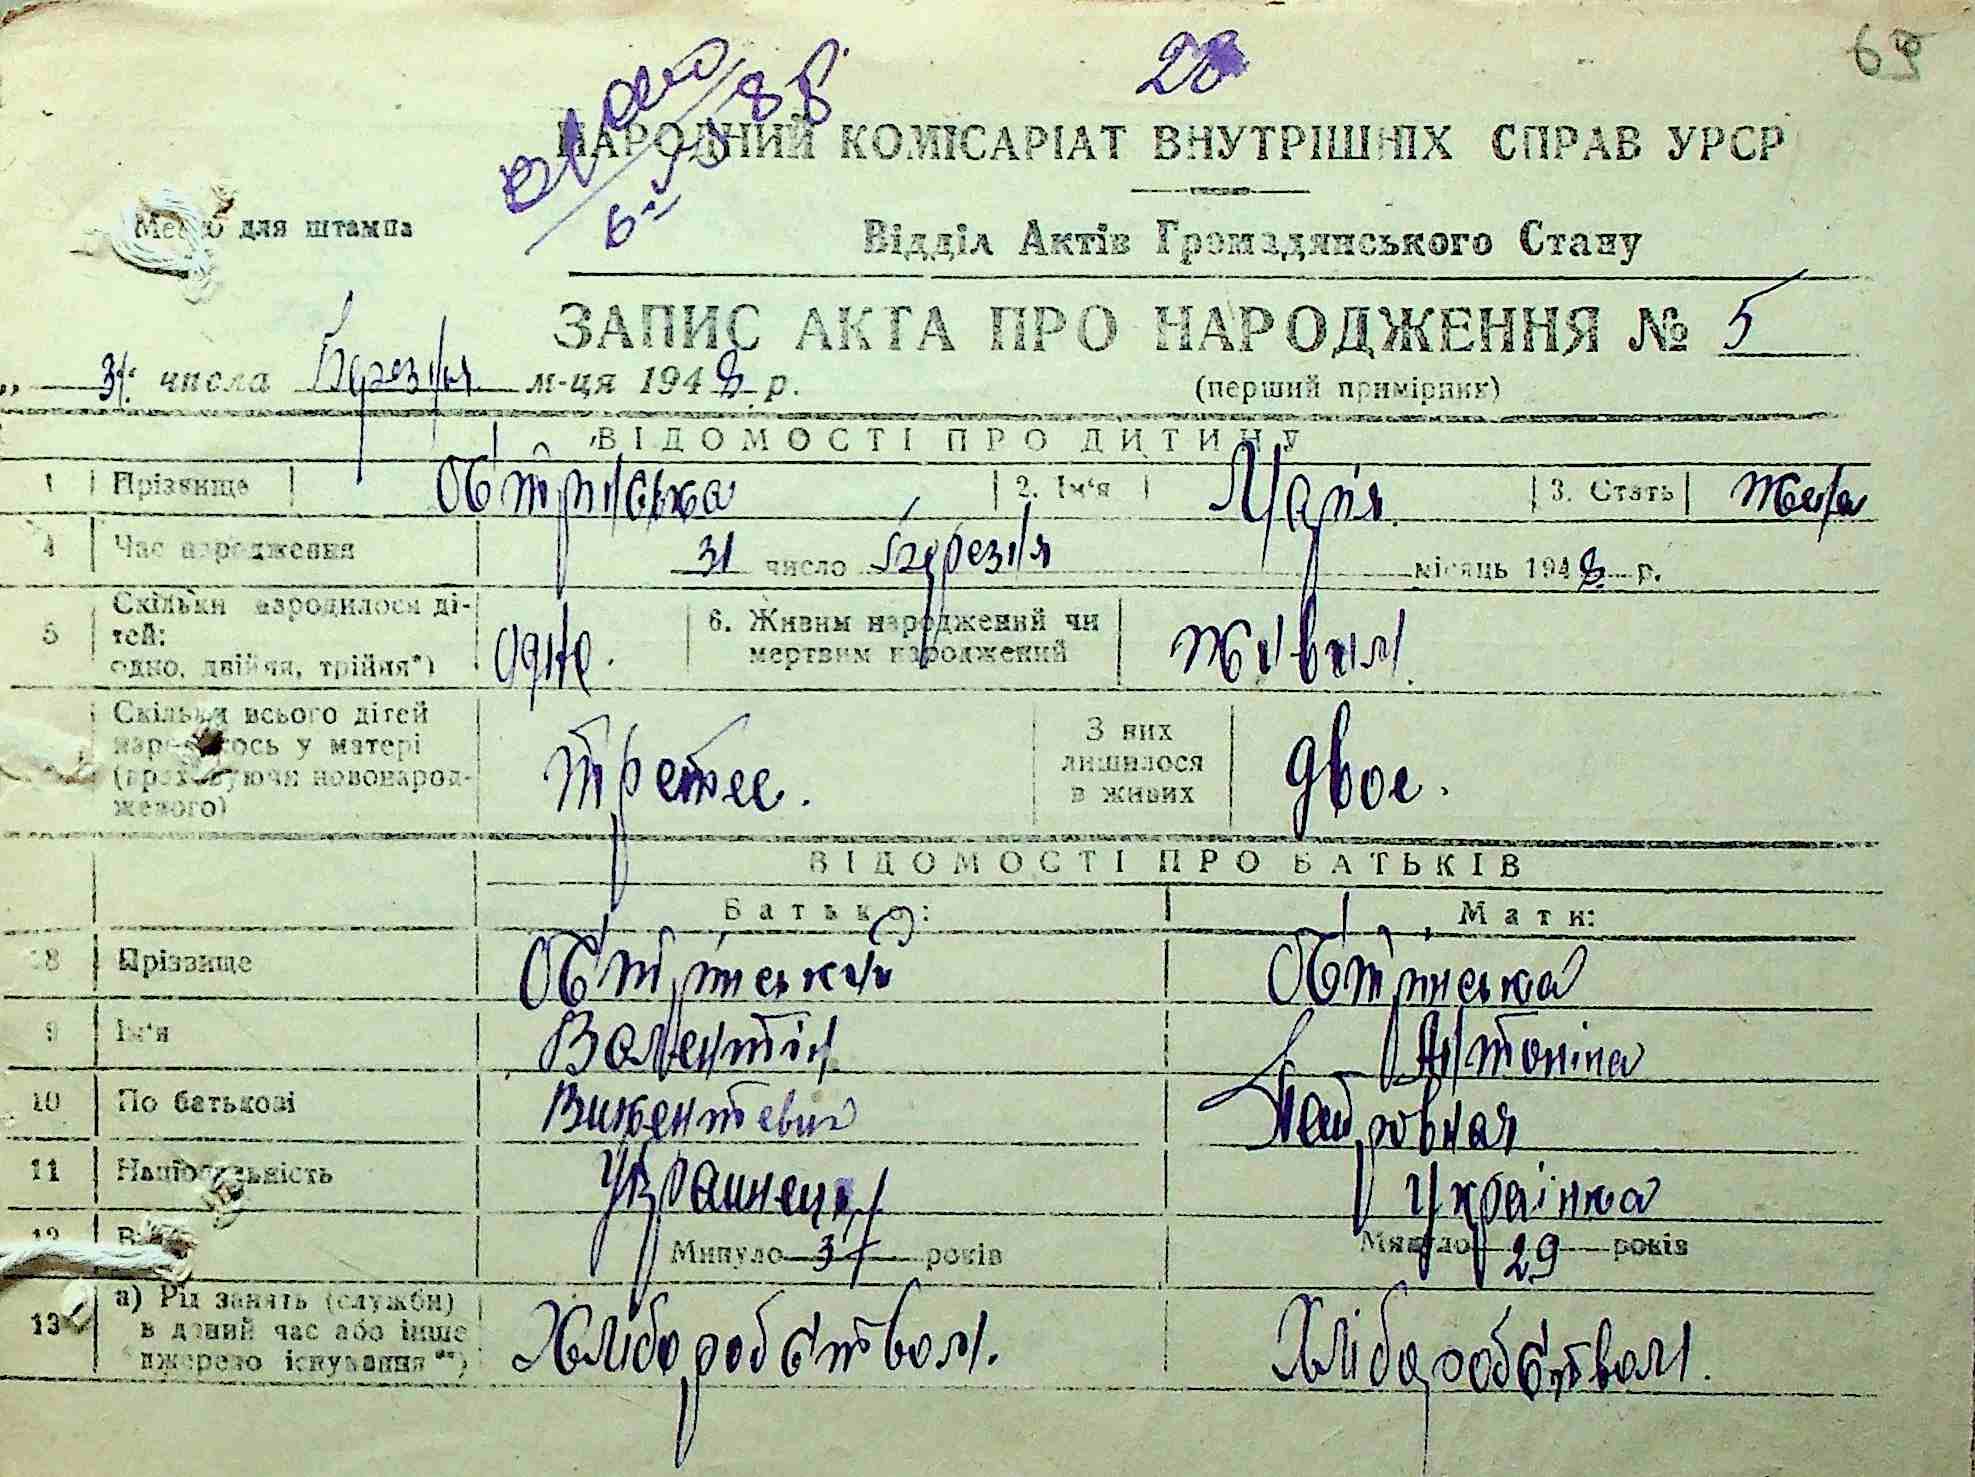 28
69
НАРОДНИЙ КОМІСАРІАТ ВНУТРІШНІХ СПРАВ УРСР
Місце для штампа
Відділ Актів Громадянського Стану
ЗАПИС АКТА ПРО НАРОДЖЕННЯ № 5
„ 31 числа Березня м-ця 1948 р.
(перший примірник)
ВІДОМОСТІ ПРО ДИТИНУ
1 Прізвище 2. Ім'я Марія 3. Стать жена
4 Час народження 31 число Березня місяць 1948 р.
5 Скільки народилося дітей: одно, двійня, трійня*) одне. 6. Живим народжений чи мертвим народжений живим.
Скільки всього дітей народилось у матері (враховуючи новонародженого) третее. З них лишилося в живих двое.
ВІДОМОСТІ ПРО БАТЬКІВ
Батько: Мати:
18 Прізвище
9 Ім'я Валентін Антоніна
10 По батькові Вікентевич Петровная
11 Національність Украінец Українка
12 Минуло років Минуло 29 років
13 а) Рід занять (служби) в даний час або інше джерело існування**) Хліборобством. Хліборобством.